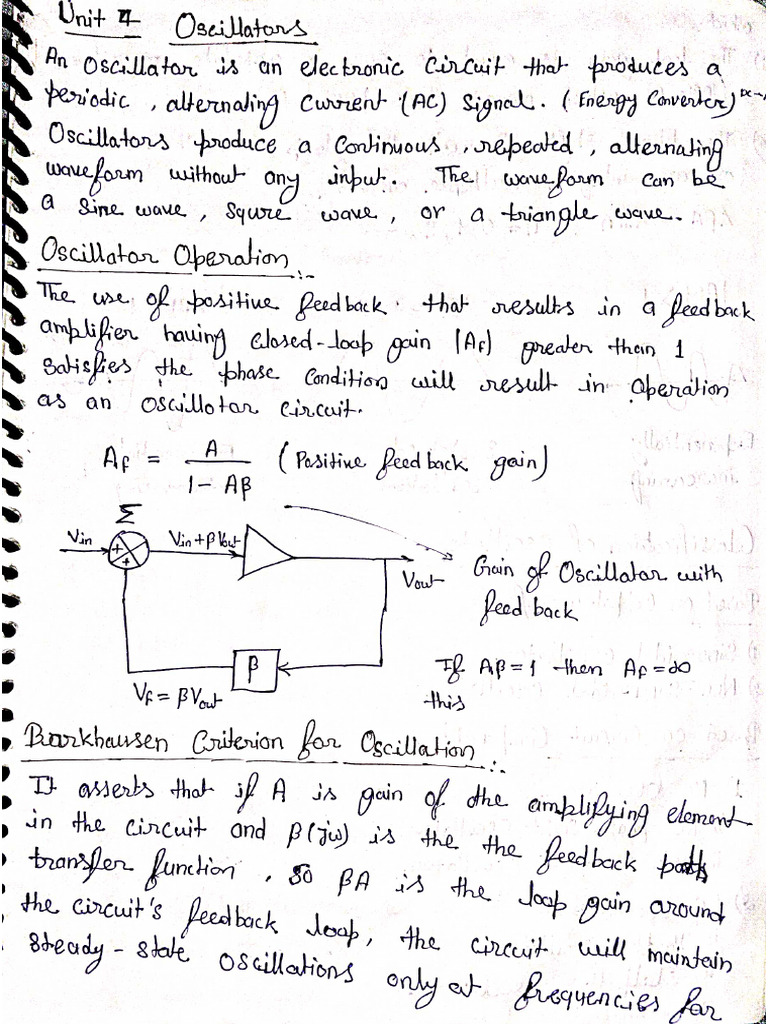 Unit 4 Oscillators
An Oscillator is an electronic circuit that produces a
periodic, alternating current (AC) signal. (Energy Converter)
Oscillators produce a continuous, repeated, alternating
waveform without any input. The waveform can be
a sine wave, squre wave, or a triangle wave.
Oscillator Operation:-
The use of positive feedback that results in a feedback
amplifier having closed-loop gain |Af| greater than 1
satisfies the phase condition will result in operation
as an oscillotor circuit.
Af = A / 1 - Aβ (Positive feedback gain)
Σ
Vin
Vin + β Vout
+
+
Vout
Gain of Oscillator with
feed back
β
Vf = β Vout
If Aβ = 1 then Af = ∞
this
Barkhausen Criterion for Oscillation:-
It asserts that if A is gain of the amplifying element
in the circuit and β(jω) is the the feedback path
transfer function, so βA is the loop gain around
the circuit's feedback loop, the circuit will maintain
steady-state oscillations only at frequencies for